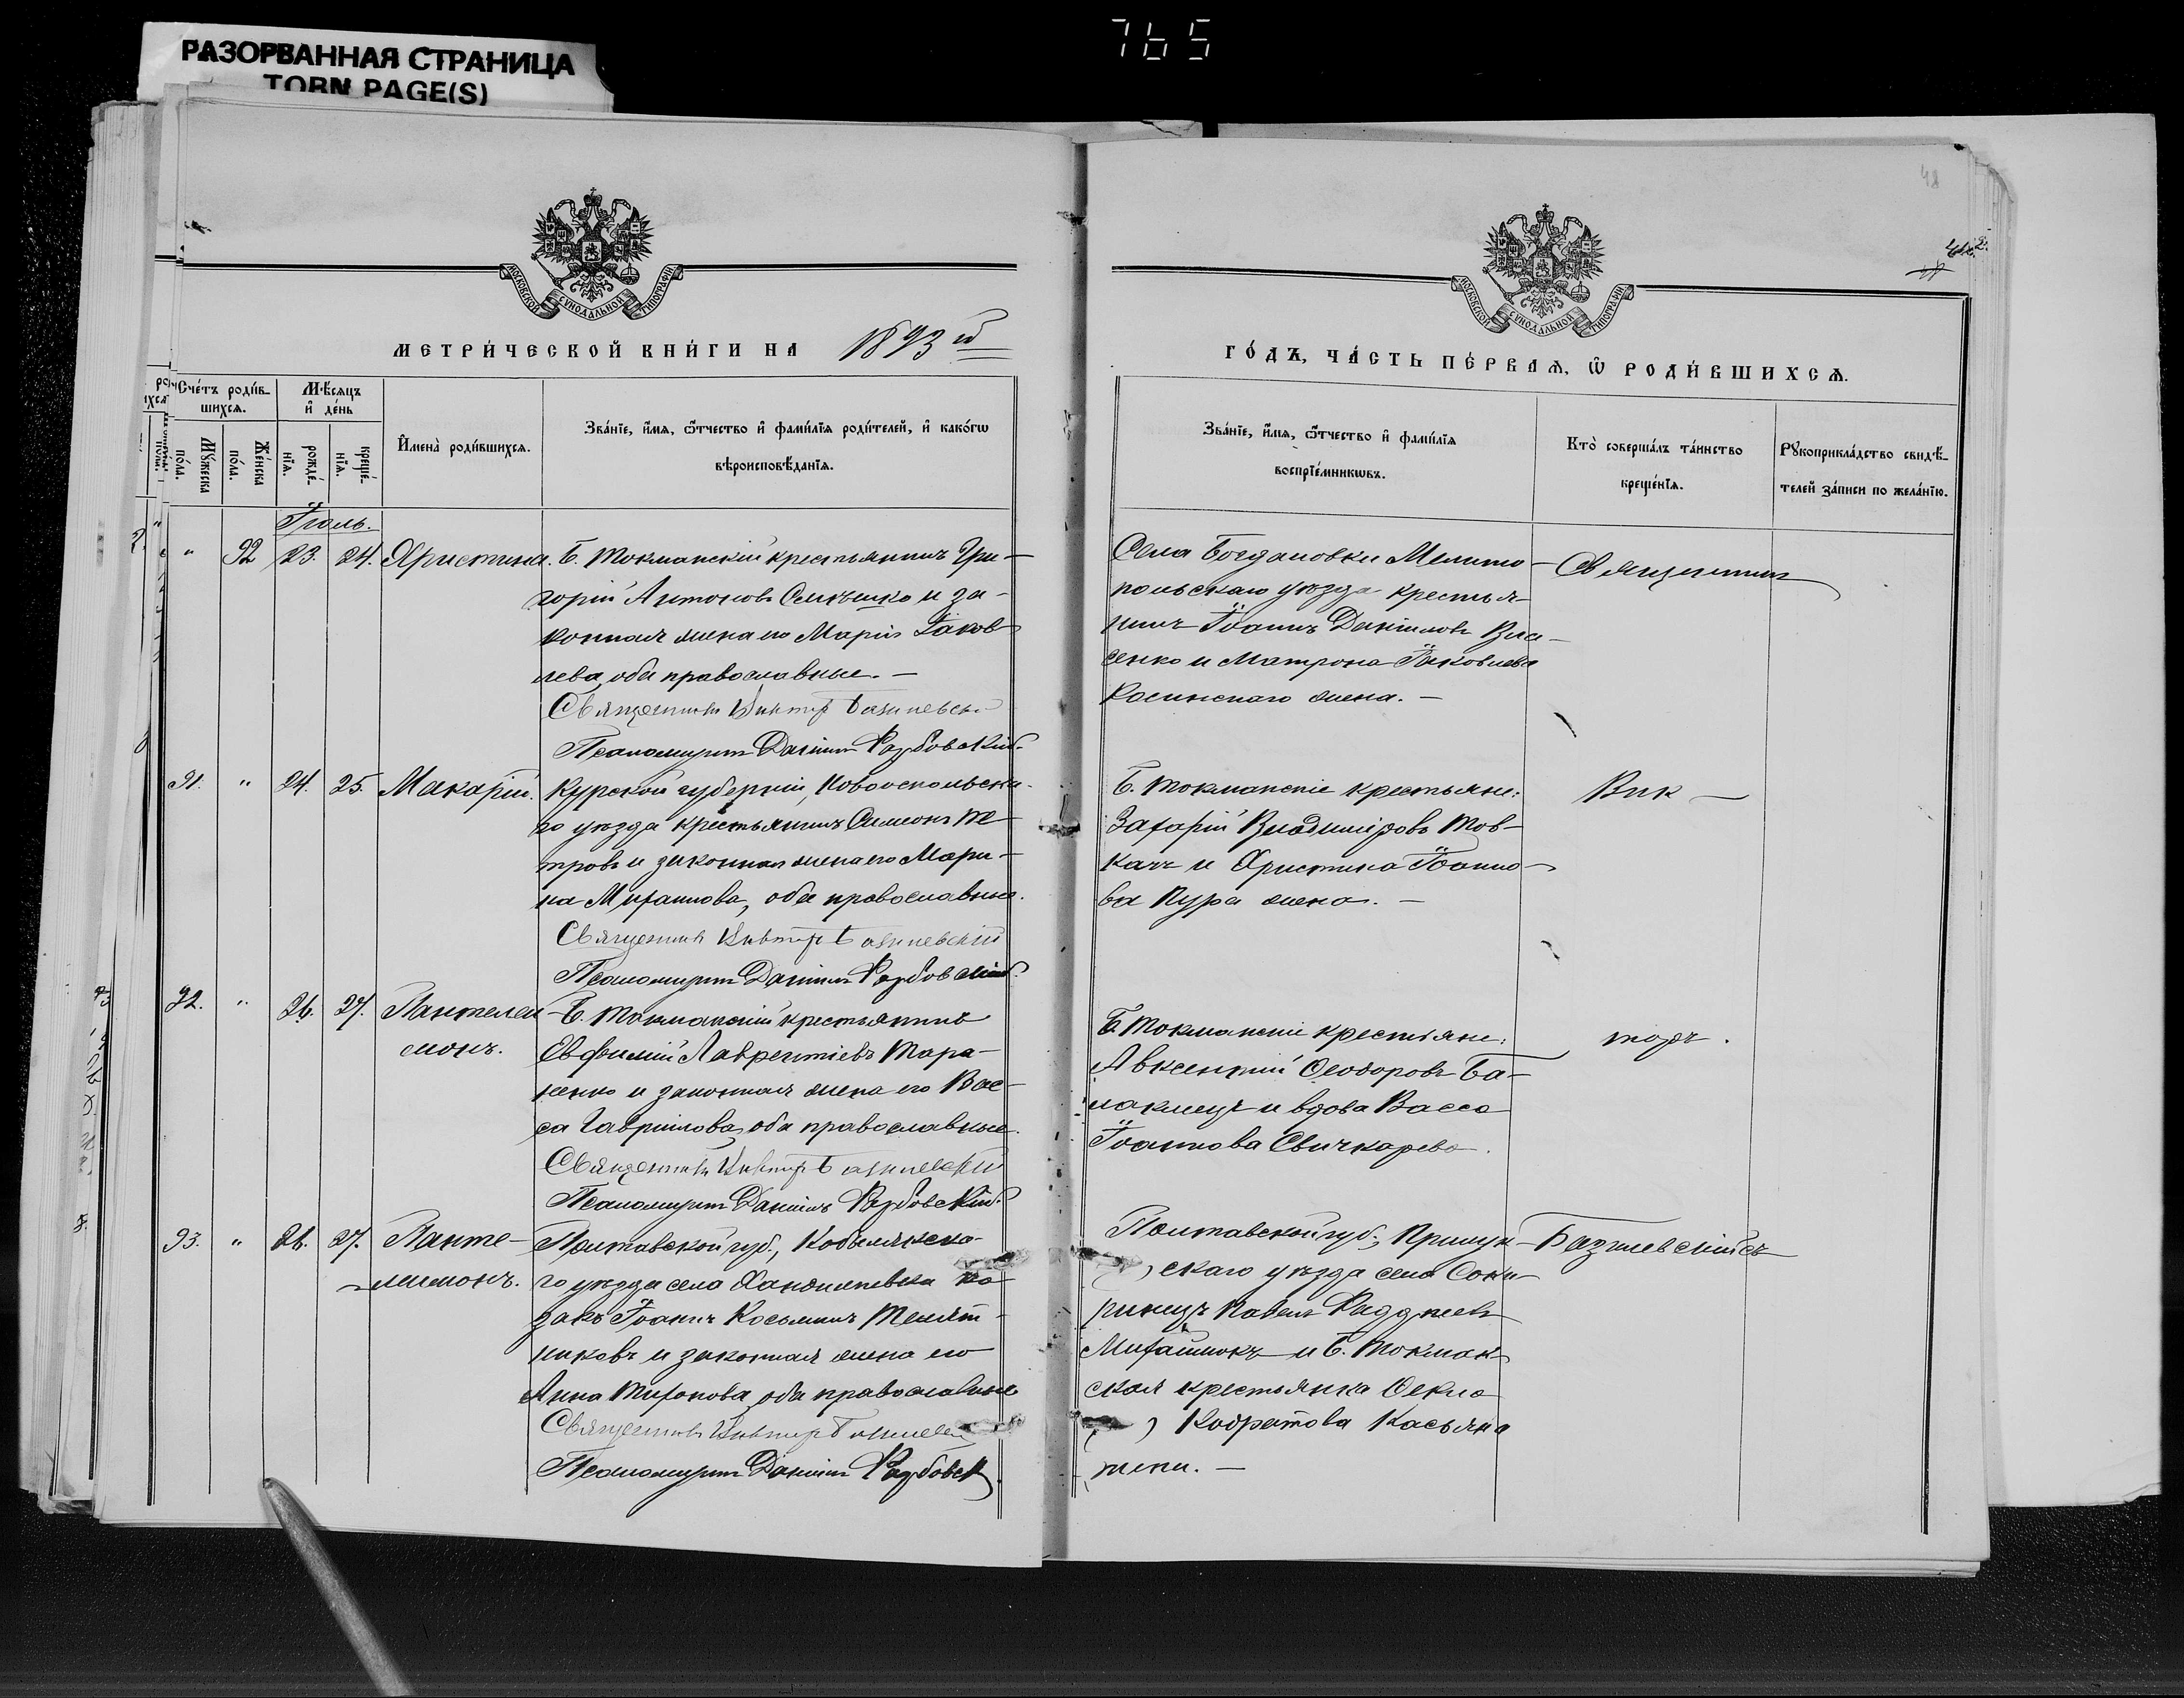 765
РАЗОРВАННАЯ СТРАНИЦА
TORN PAGE(S)
МОСКОВСКОЙ СѴНОДАЛЬНОЙ ТИПОГРАФІИ
МЕТРИ́ЧЕСКОЙ КНИ́ГИ НА 1893 й
Сче́тъ роди́в-
шихсѧ.
Мѣ́сѧцъ
и҆ де́нь
Му́жеска
по́ла.
Же́нска
по́ла.
рожде́-
нїѧ.
креще́-
нїѧ.
И҆мена̀ роди́вшихсѧ.
Зва́нїе, и҆́мѧ, ѻ҆́тчество и҆ фами́лїѧ роди́телей, и҆ како́гѡ
вѣроисповѣ́данїѧ.
Іюль.
" 92 23. 24. Христина. Б. Токмакскій крестьянинъ Гри-
горій Антоновъ и за-
конная жена его Марія Іаков-
лева, оба православные. –
Священникъ Викторъ Базилевскій
Псаломщикъ Даніилъ
91. " 24. 25. Макарій. Курской губерніи, Новооскольска-
го уѣзда крестьянинъ Симеонъ Пе-
тровъ и законная жена его Мари-
на Михаилова, оба православные.
Священникъ Викторъ Базилевскій
Псаломщикъ Даніилъ
92. " 26. 27. Пантелеи- Б. Токмакскій крестьянинъ
монъ. Евфимій Лаврентіевъ Тара-
ненко и законная жена его Вас-
са Гавриилова, оба православные.
Священникъ Викторъ Базилевскій
Псаломщикъ Даніилъ
93. " 26. 27. Панте- Полтавской губ., Кобылякска-
леимонъ. го уѣзда села ко-
закъ Іоаннъ Косьминъ Телят-
никовъ и законная жена его
Анна Тихонова, оба православные
Священникъ Викторъ
Псаломщикъ Даніилъ
48
МОСКОВСКОЙ СѴНОДАЛЬНОЙ ТИПОГРАФІИ
ГО́ДЪ, ЧА́СТЬ ПЕ́РВАѦ, Ѡ҆ РОДИ́ВШИХСѦ.
Зва́нїе, и҆́мѧ, ѻ҆́тчество и҆ фами́лїѧ
воспрїе́мникѡвъ.
Кто̀ соверша́лъ та́инство
креще́нїѧ.
Рꙋкоприкла́дство свидѣ́-
телей за́писи по жела́нїю.
Села Богдановки Мелито-
польскаго уѣзда крестья-
нинъ Іоаннъ Даніиловъ Вла-
сенко и Матрона Іаковлева
жена. –
Священникъ
Б. Токмакскіе крестьяне:
Захарій Владиміровъ Тов-
качъ и Христина Іоанно-
ва Кура жена. –
Вик –
Б. Токмакскіе крестьяне:
Авксентій Ѳеодоровъ Ба-
лаклецъ и вдова Васса
Іоаннова Свичкарева.
торъ.
Полтавской губ., Прилук-
скаго уѣзда села Соки-
ринецъ Павелъ Фаддѣевъ
и Б. Токмак-
ская крестьянка Ѳекла
Кодратова Касьяна
жена. –
Базилевскій